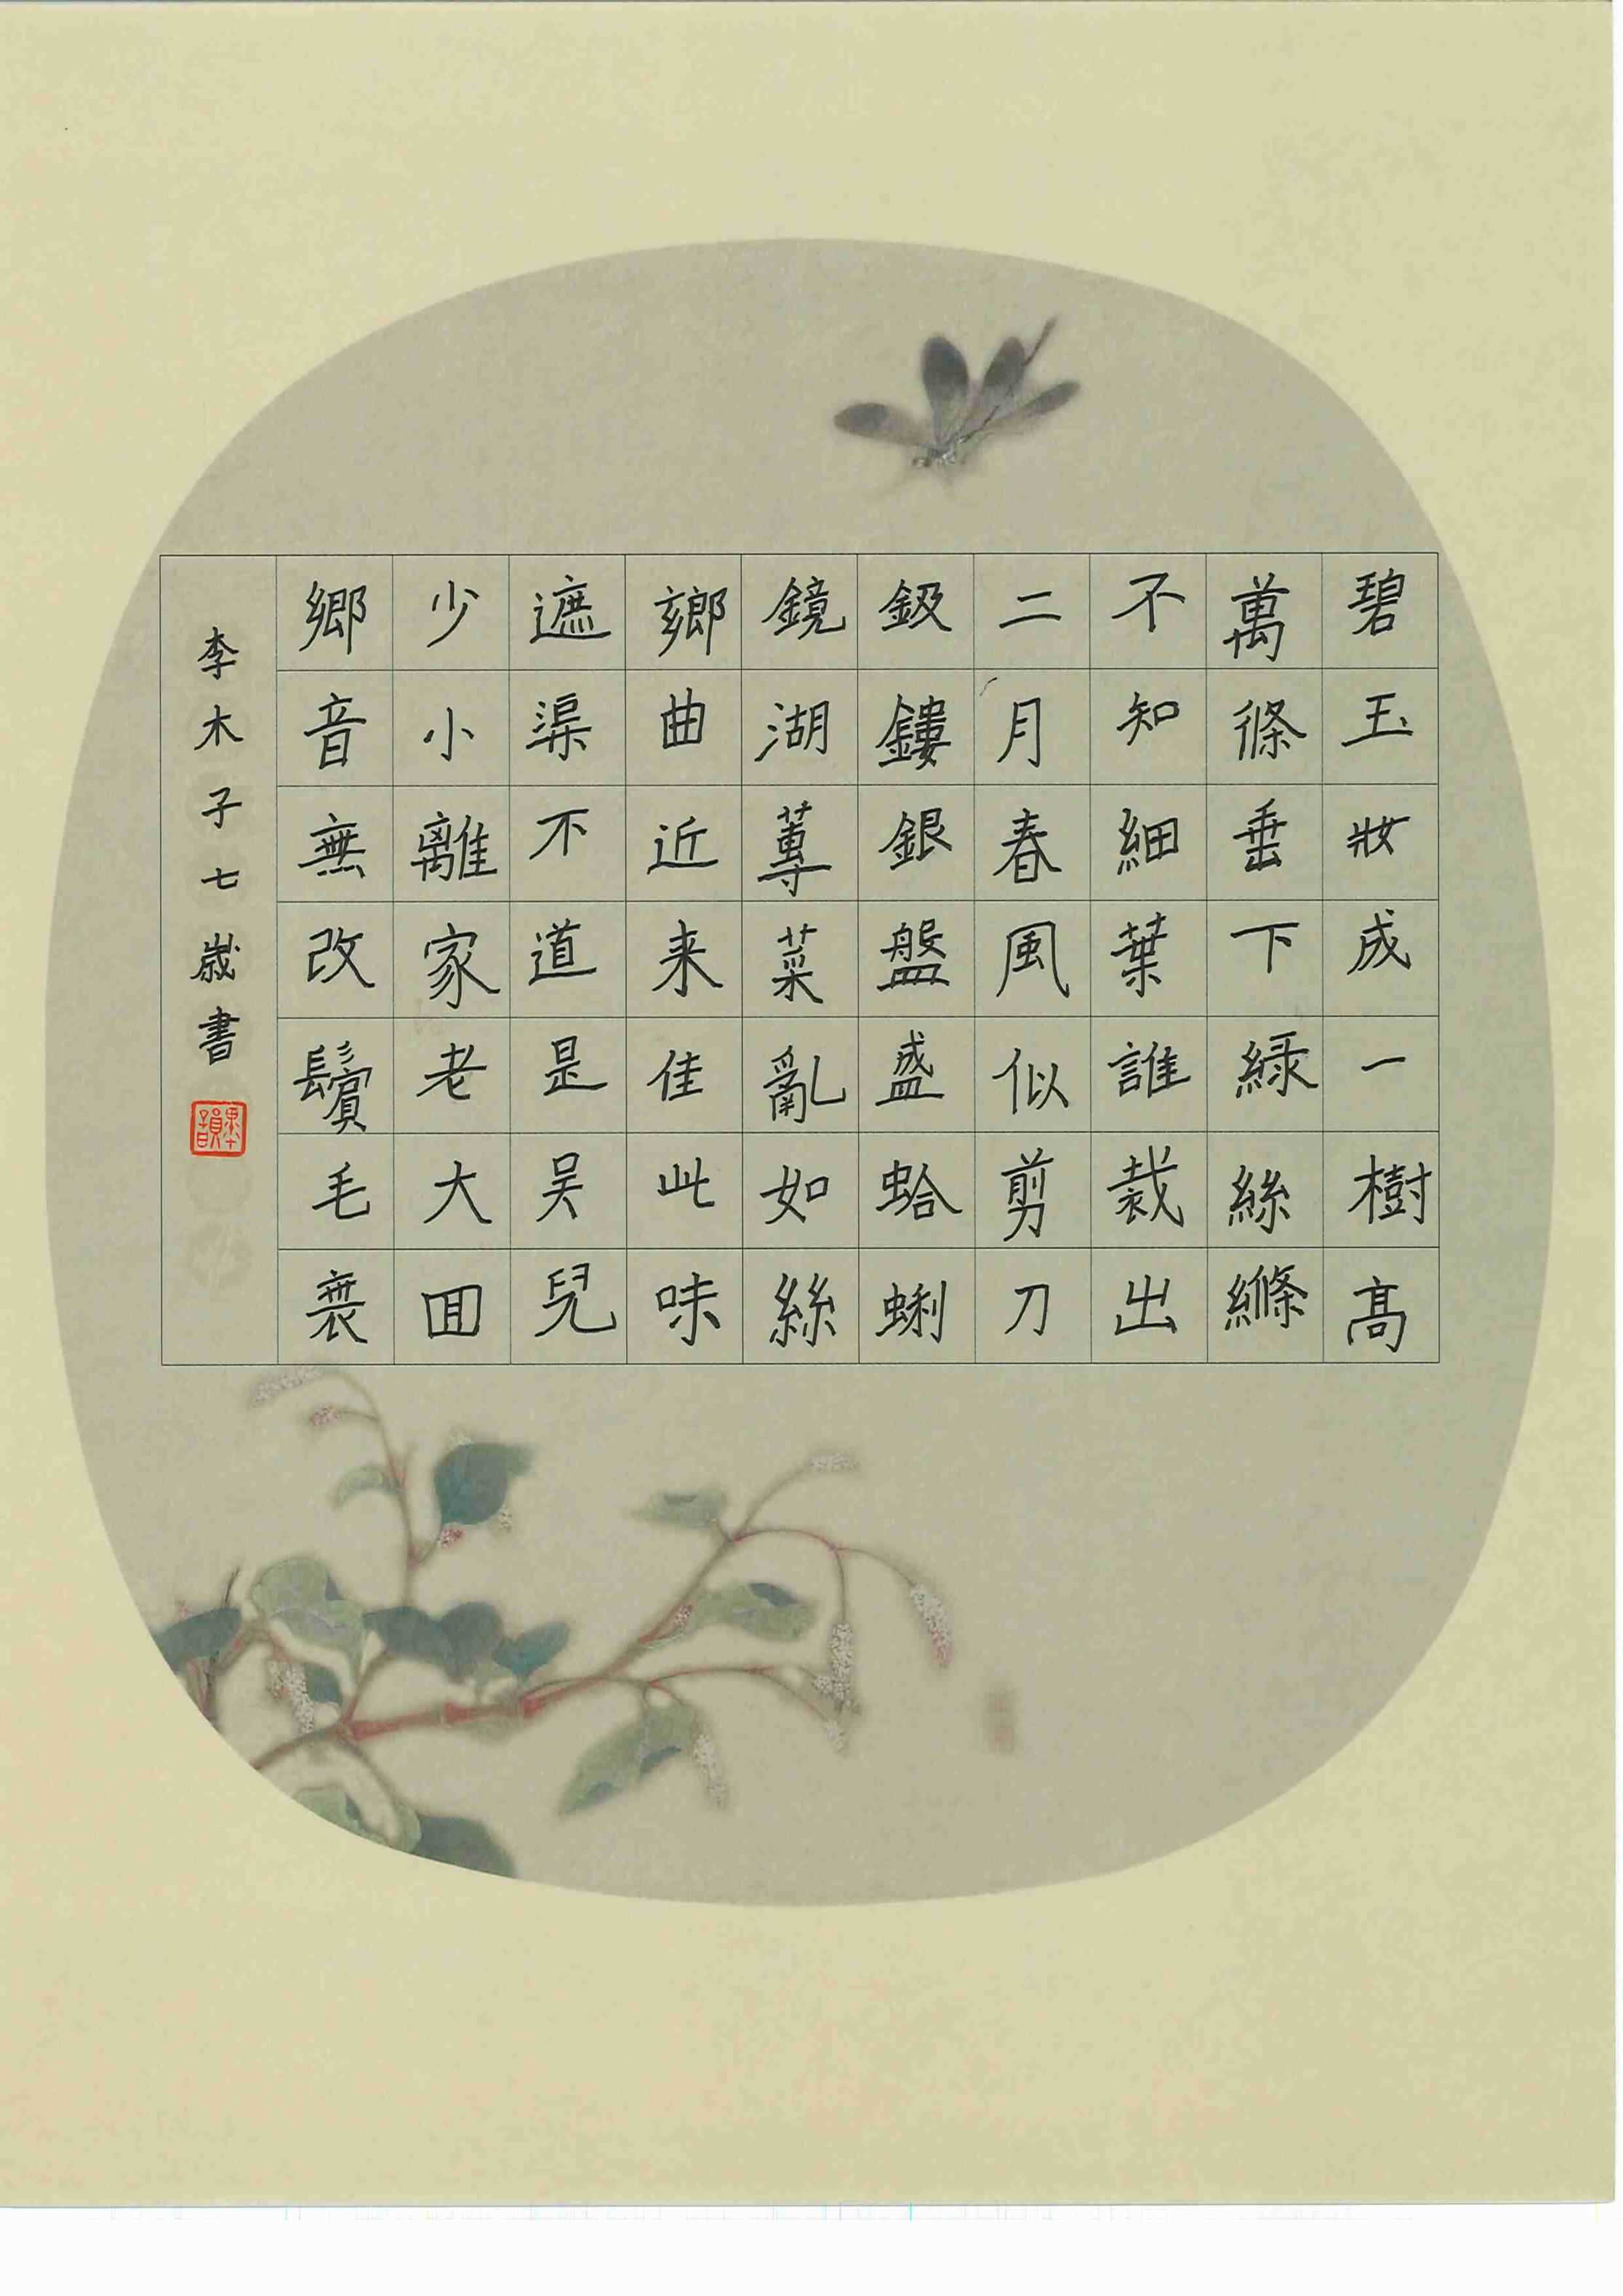 碧玉妝成一樹高
萬條垂下綠絲縧
不知細葉誰裁出
二月春風似剪刀
鈒鏤銀盤盛蛤蜊
鏡湖蓴菜亂如絲
鄉曲近来佳此味
遮渠不道是吴兒
少小離家老大囬
鄉音無改鬢毛衰
李木子七歲書
墨韻